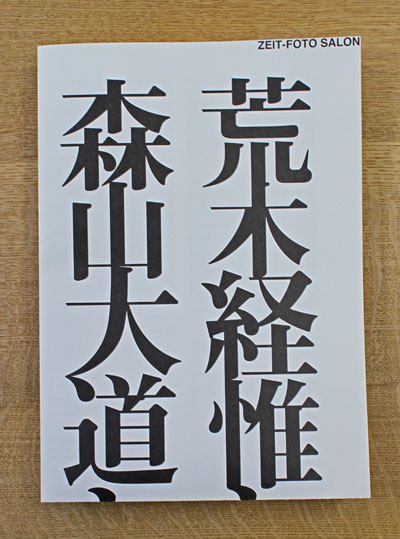 ZEIT-FOTO SALON
荒木経惟
森山大道